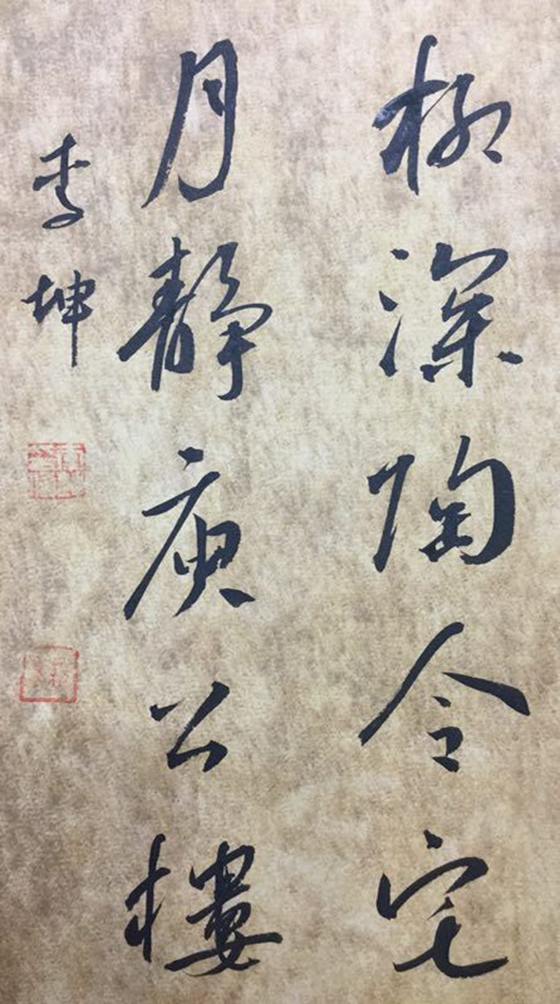 柳深陶令宅
月静庾公樓
李坤